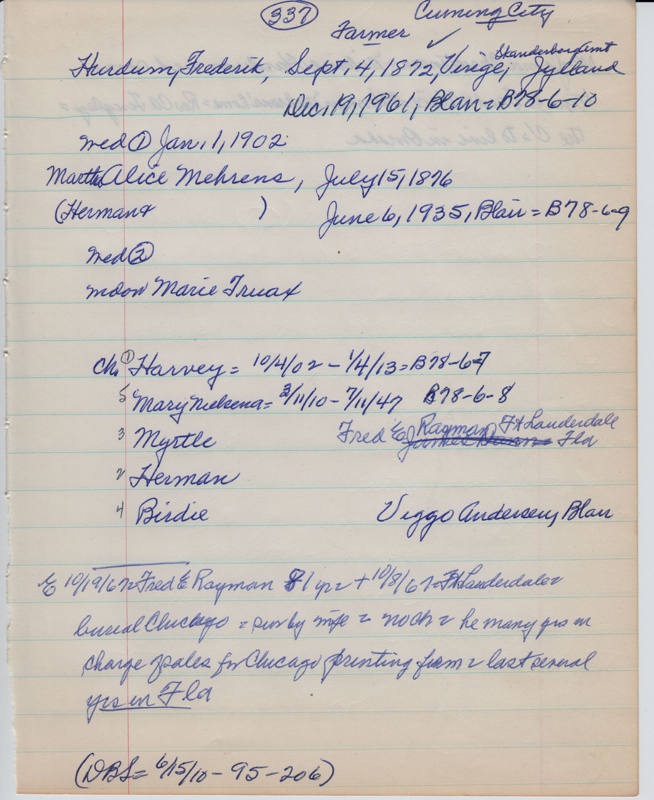 337
Cuming City
Farmer
Skanderborg Amt
Hurdum, Frederik, Sept. 4, 1872, Virige, Jylland
Dec. 19, 1961, Blair = B78-6-10
wed ① Jan. 1, 1902
Martha Alice Mehrens, July 15, 1876
(Herman & ) June 6, 1935, Blair = B78-6-9
wed ②
Marie Truax
Ch. ① Harvey = 10/4/02 - 1/4/13 = B78-6-7
5 Mary Nielsena = 3/11/10 - 7/11/47 B78-6-8
3 Myrtle Fred E Rayman Ft Lauderdale Fla
2 Herman
4 Birdie Viggo Andersen, Blair
E 10/19/67 = Fred E Rayman 81 yrs + 10/8/67 = Ft Lauderdale =
burial Chicago = sur by wife = no ch = he many yrs in
charge of sales for Chicago printing firm = last several
yrs in Fla
(DBS = 6/15/10 - 95 - 206)